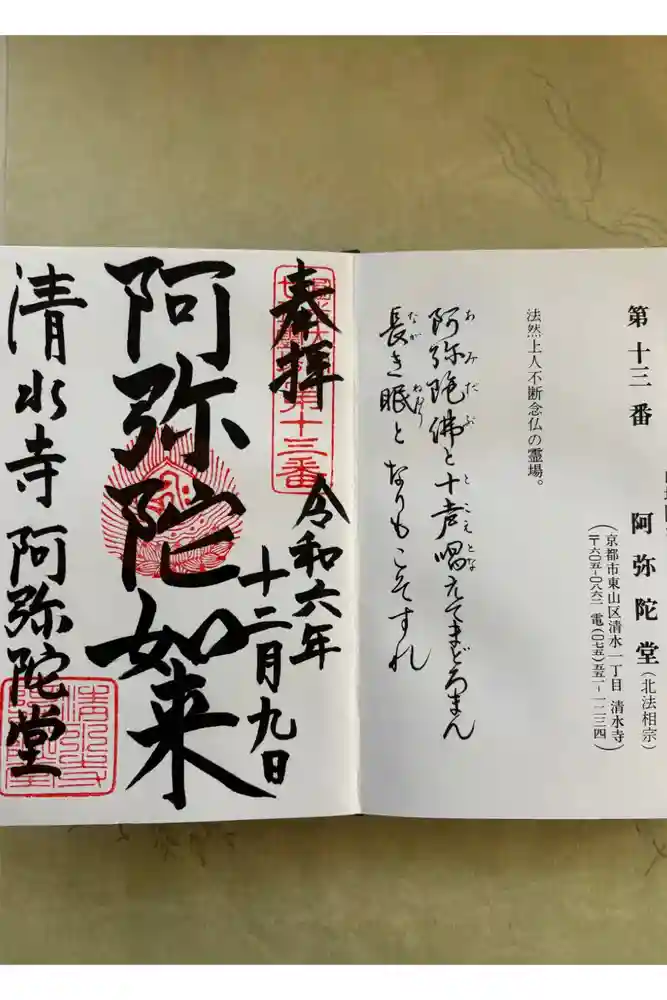 第十三番 阿弥陀堂(北法相宗)
(京都市東山区清水一丁目 清水寺
〒六〇五-〇八六二 電(〇七五)五五一-一二三四)
法然上人不断念仏の霊場。
阿弥陀佛と十声唱えてまどろまん
あみだぶ とこえとな
長き眠となりもこそすれ
なが ねむり
奉拝
第十三番
令和六年
十二月九日
阿弥陀如来
清水寺 阿弥陀堂